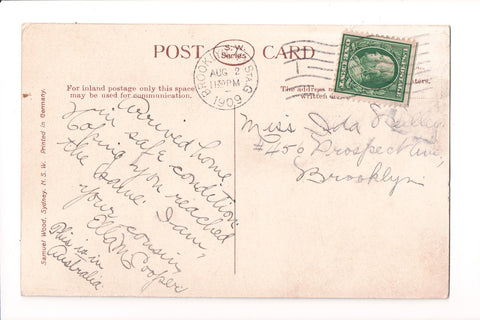 POST S. W. Series CARD
For inland postage only this space
may be used for communication.
The address to
written
ters.
BROOKLYN STA. G
AUG 2
11 30 PM
1909
Samuel Wood, Sydney, N.S.W. Printed in Germany.
Arrived home
in safe condition.
Hoping you reached
the same. I am,
your cousin,
Ella M Cooper
This is in
Australia
Miss Ida
#450 Prospect Ave,
Brooklyn